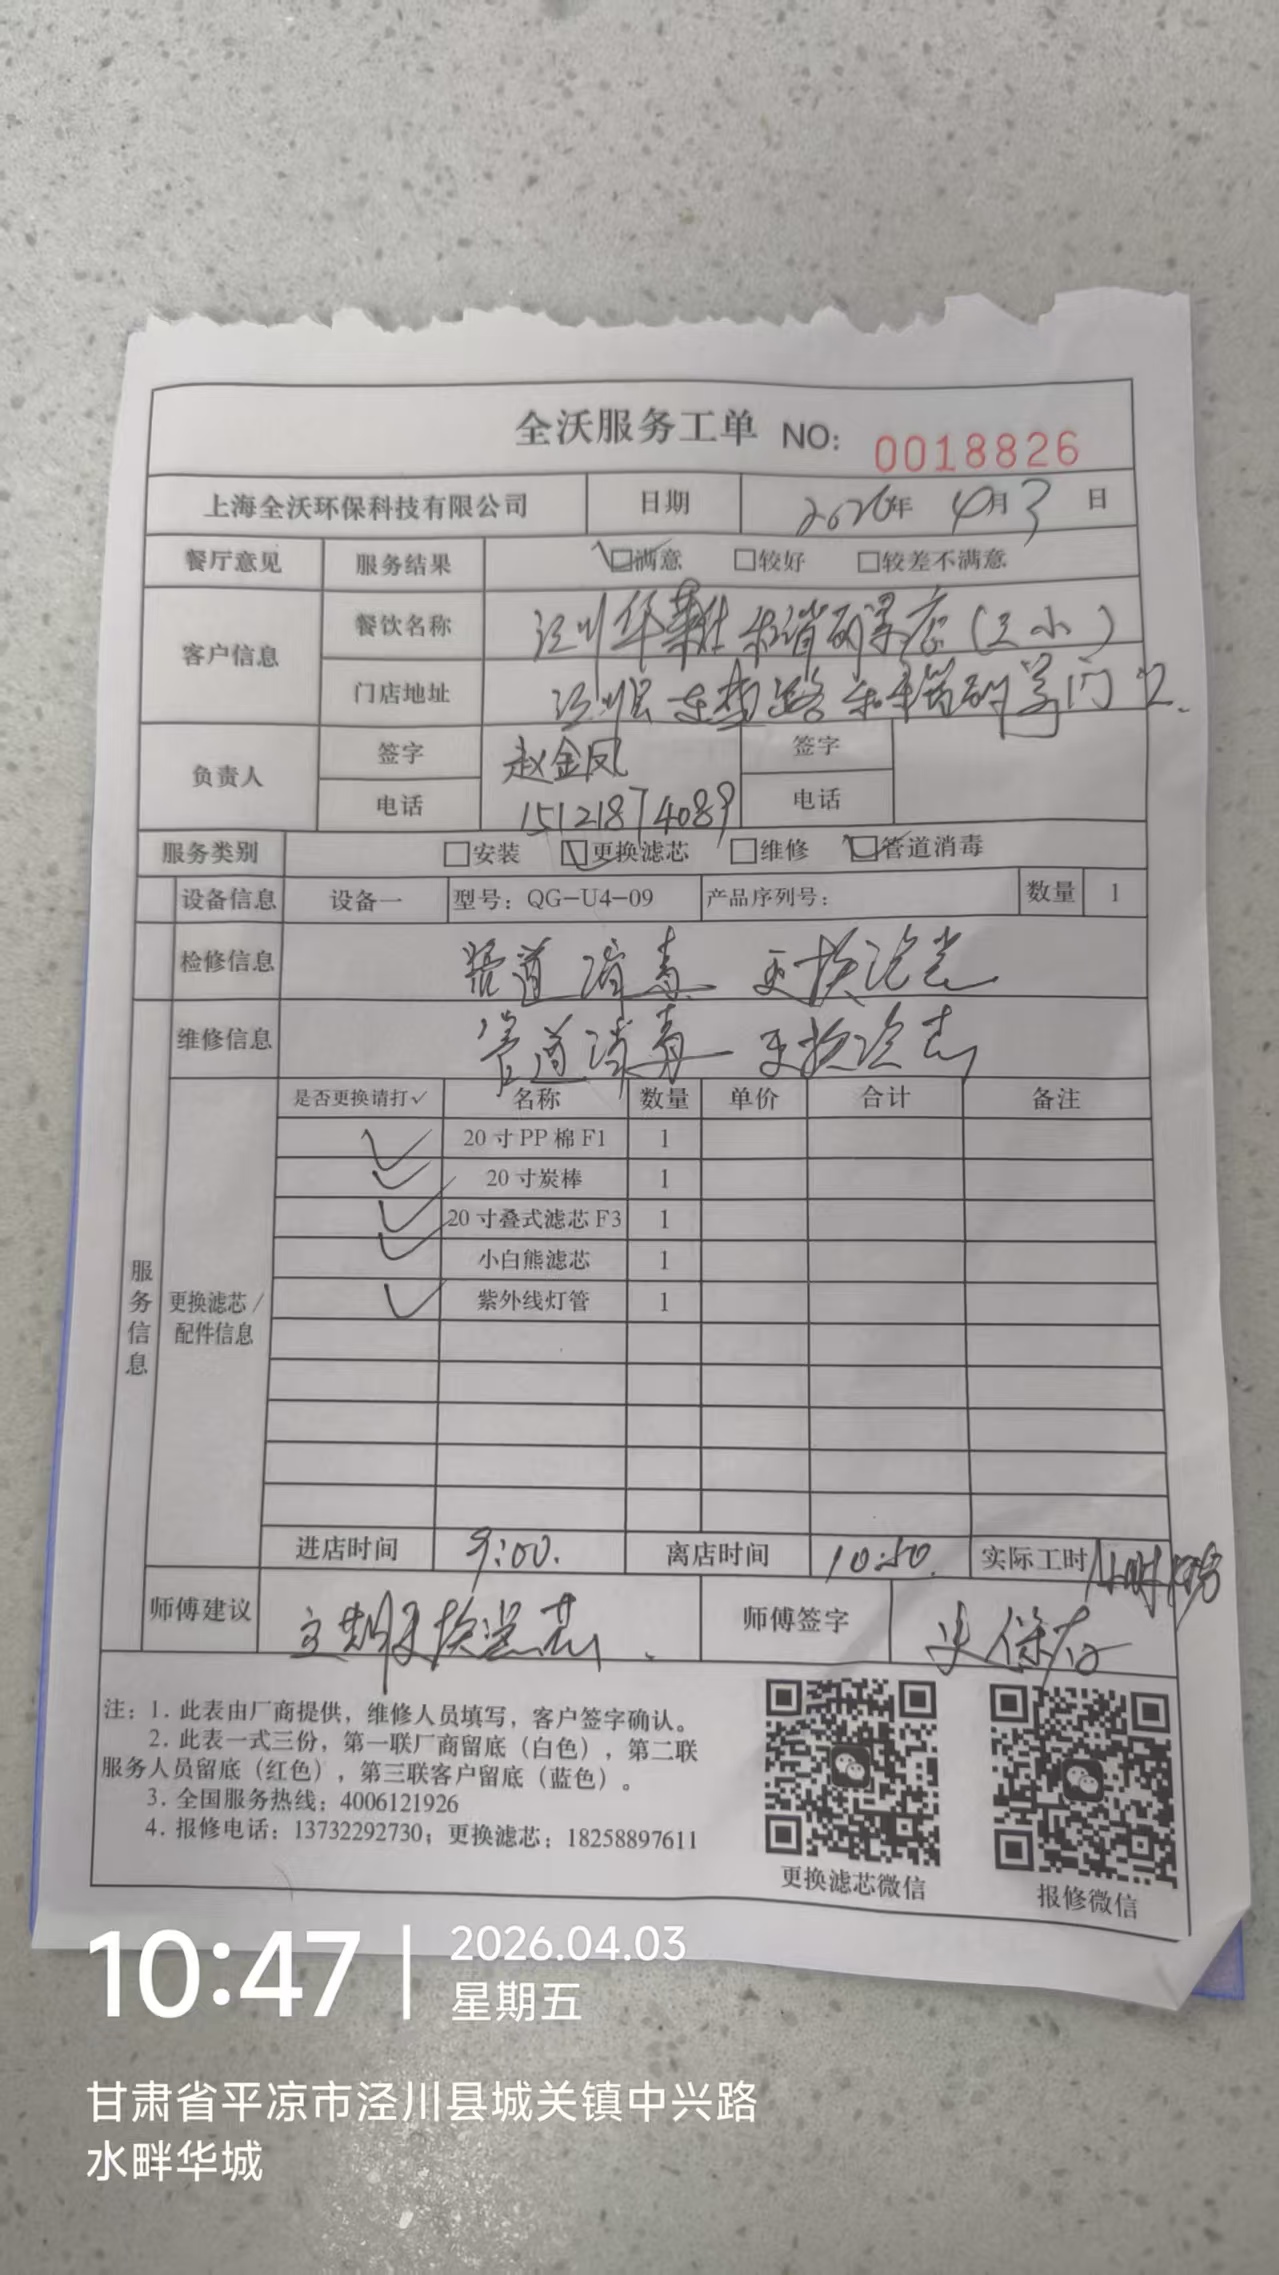 全沃服务工单 NO: 0018826
上海全沃环保科技有限公司 日期 2026年 4月3日
餐厅意见 服务结果 ☑满意 □较好 □较差不满意
客户信息 餐饮名称 泾川华莱士
门店地址 泾川县 路 门口.
负责人 签字 赵金凤 签字
电话 15121874089 电话
服务类别 □安装 ☑更换滤芯 □维修 ☑管道消毒
设备信息 设备一 型号: QG-U4-09 产品序列号: 数量 1
检修信息 管道消毒 更换滤芯
维修信息 管道消毒 更换滤芯
是否更换请打✓ 名称 数量 单价 合计 备注
✓ 20寸PP棉F1 1
✓ 20寸炭棒 1
✓ 20寸叠式滤芯F3 1
✓ 小白熊滤芯 1
✓ 紫外线灯管 1
服务信息
更换滤芯/
配件信息
进店时间 9:00. 离店时间 10:50. 实际工时
师傅建议 定期更换滤芯. 师傅签字
注: 1. 此表由厂商提供, 维修人员填写, 客户签字确认。
2. 此表一式三份, 第一联厂商留底(白色), 第二联
服务人员留底(红色), 第三联客户留底(蓝色)。
3. 全国服务热线: 4006121926
4. 报修电话: 13732292730; 更换滤芯: 18258897611
更换滤芯微信 报修微信
10:47 2026.04.03
星期五
甘肃省平凉市泾川县城关镇中兴路
水畔华城